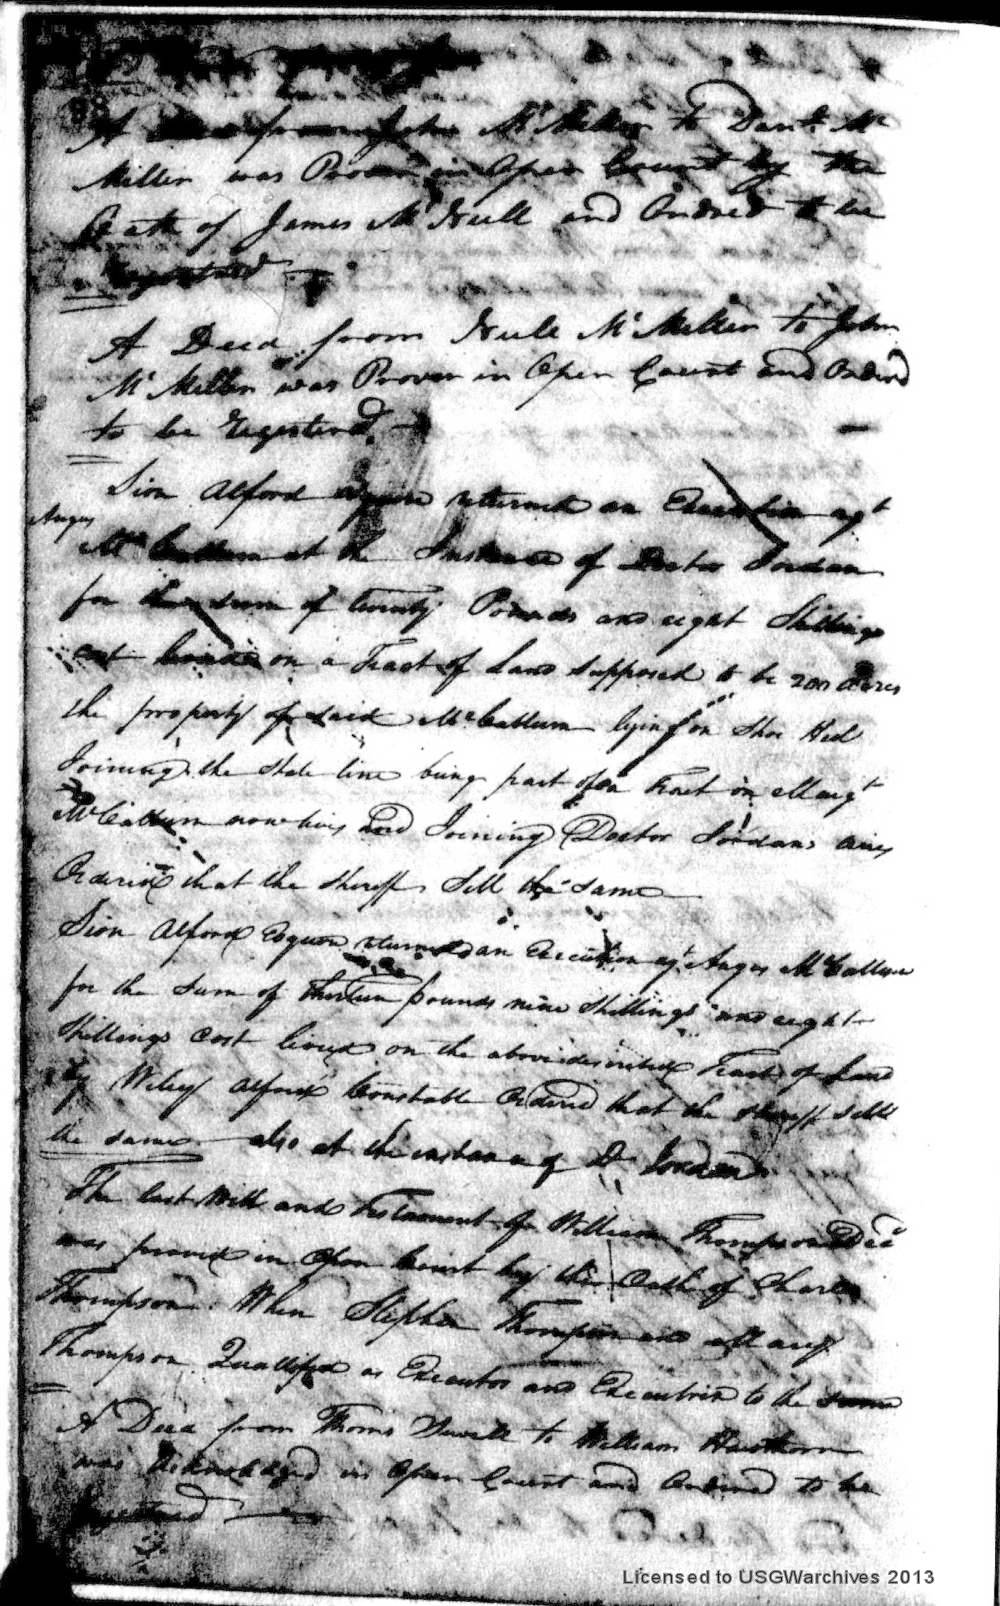 A from John Mc Millen to Danl. Mc
Millen was Proven in Open Court by the
Oath of James Mc Neill and Ordred to be
Registred
A Deed from Neile Mc Millen to John
Mc Millen was Proven in Open Court and Ordred
to be Registered
Sion Alford Esquire returned an Execution agt
Angus
Mc Callum at the Instance of Doctor Jordan
for the sum of twenty Pounds and eight Shillings
cost levied on a Tract of Land supposed to be 200 Acres
the property of said McCallum lying on Shoe Heel
Joining the State line being part of a Tract on Margt
McCallum now lives and Joining Doctor Jordans
Ordered that the Sheriff Sell the Same
Sion Alford Esquire returned an Execution agt Angus McCallum
for the Sum of thirteen pounds nine Shillings and eight
Shillings Cost levied on the above described Tract of Land
by Wiley Alford Constable Ordered that the Sheriff sell
the same also at the instance of Dr Jordan
The last Will and Testament of William Thompson Decd
was proved in Open Court by the Oath of Charles
Thompson When Stephen Thompson and Mary
Thompson Quallifed as Executor and Executrix to the same
A Deed from Thoms to William Hawthorn
was Acknoledged in Open Court and Ordered to be
Registred
Licensed to USGWarchives 2013